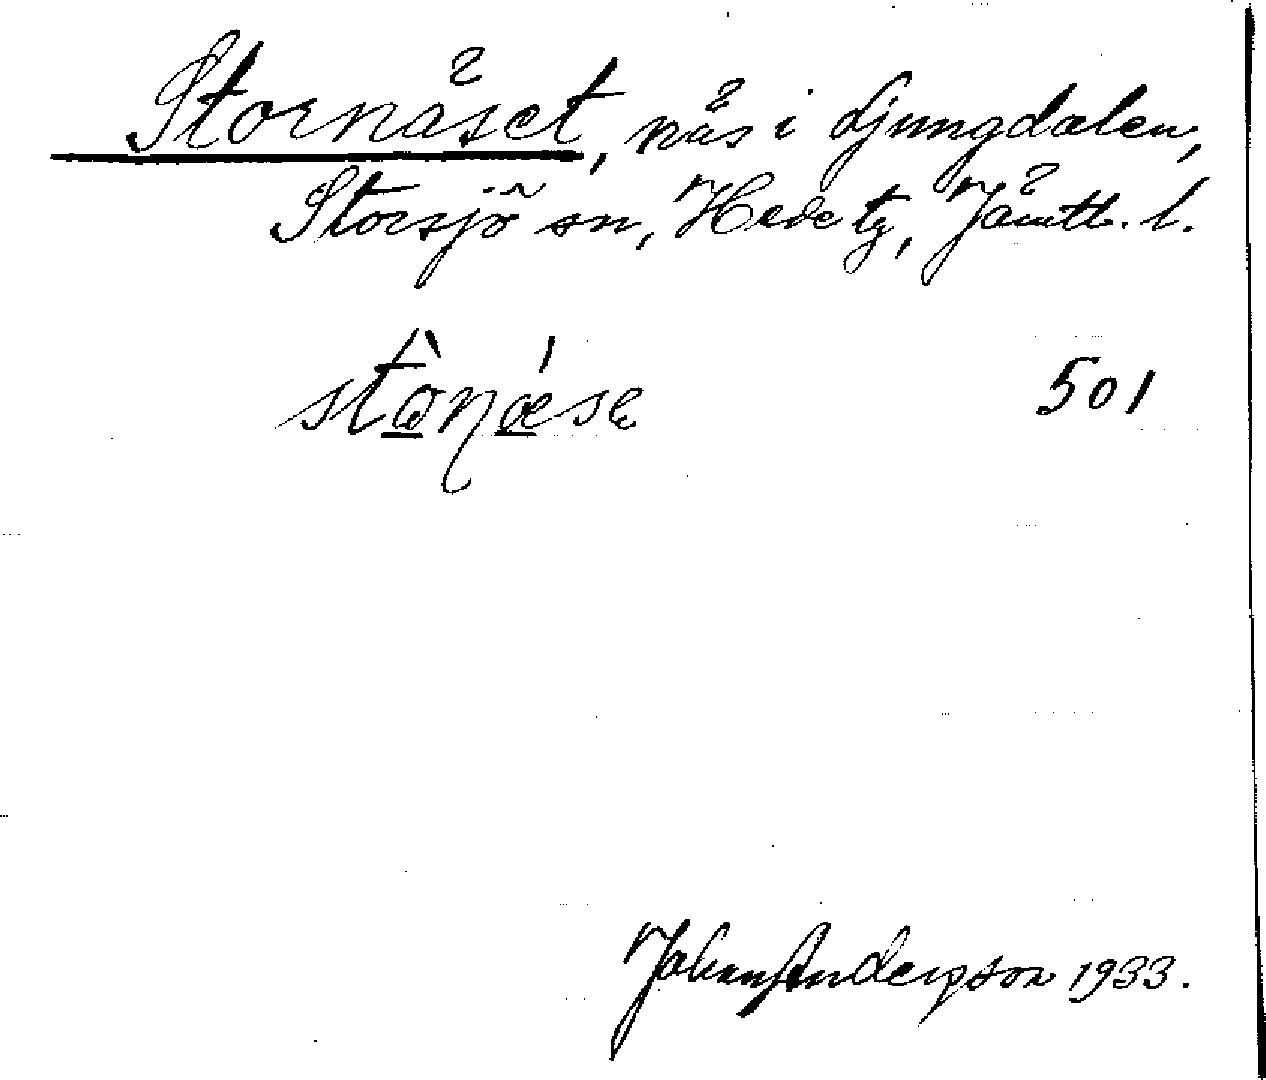 Stornäset, näs i Ljungdalen,
Storsjö sn, Hede tg, Jämtl. l.
stɷ̀ɳǽse 501
Johan Anderson 1933.